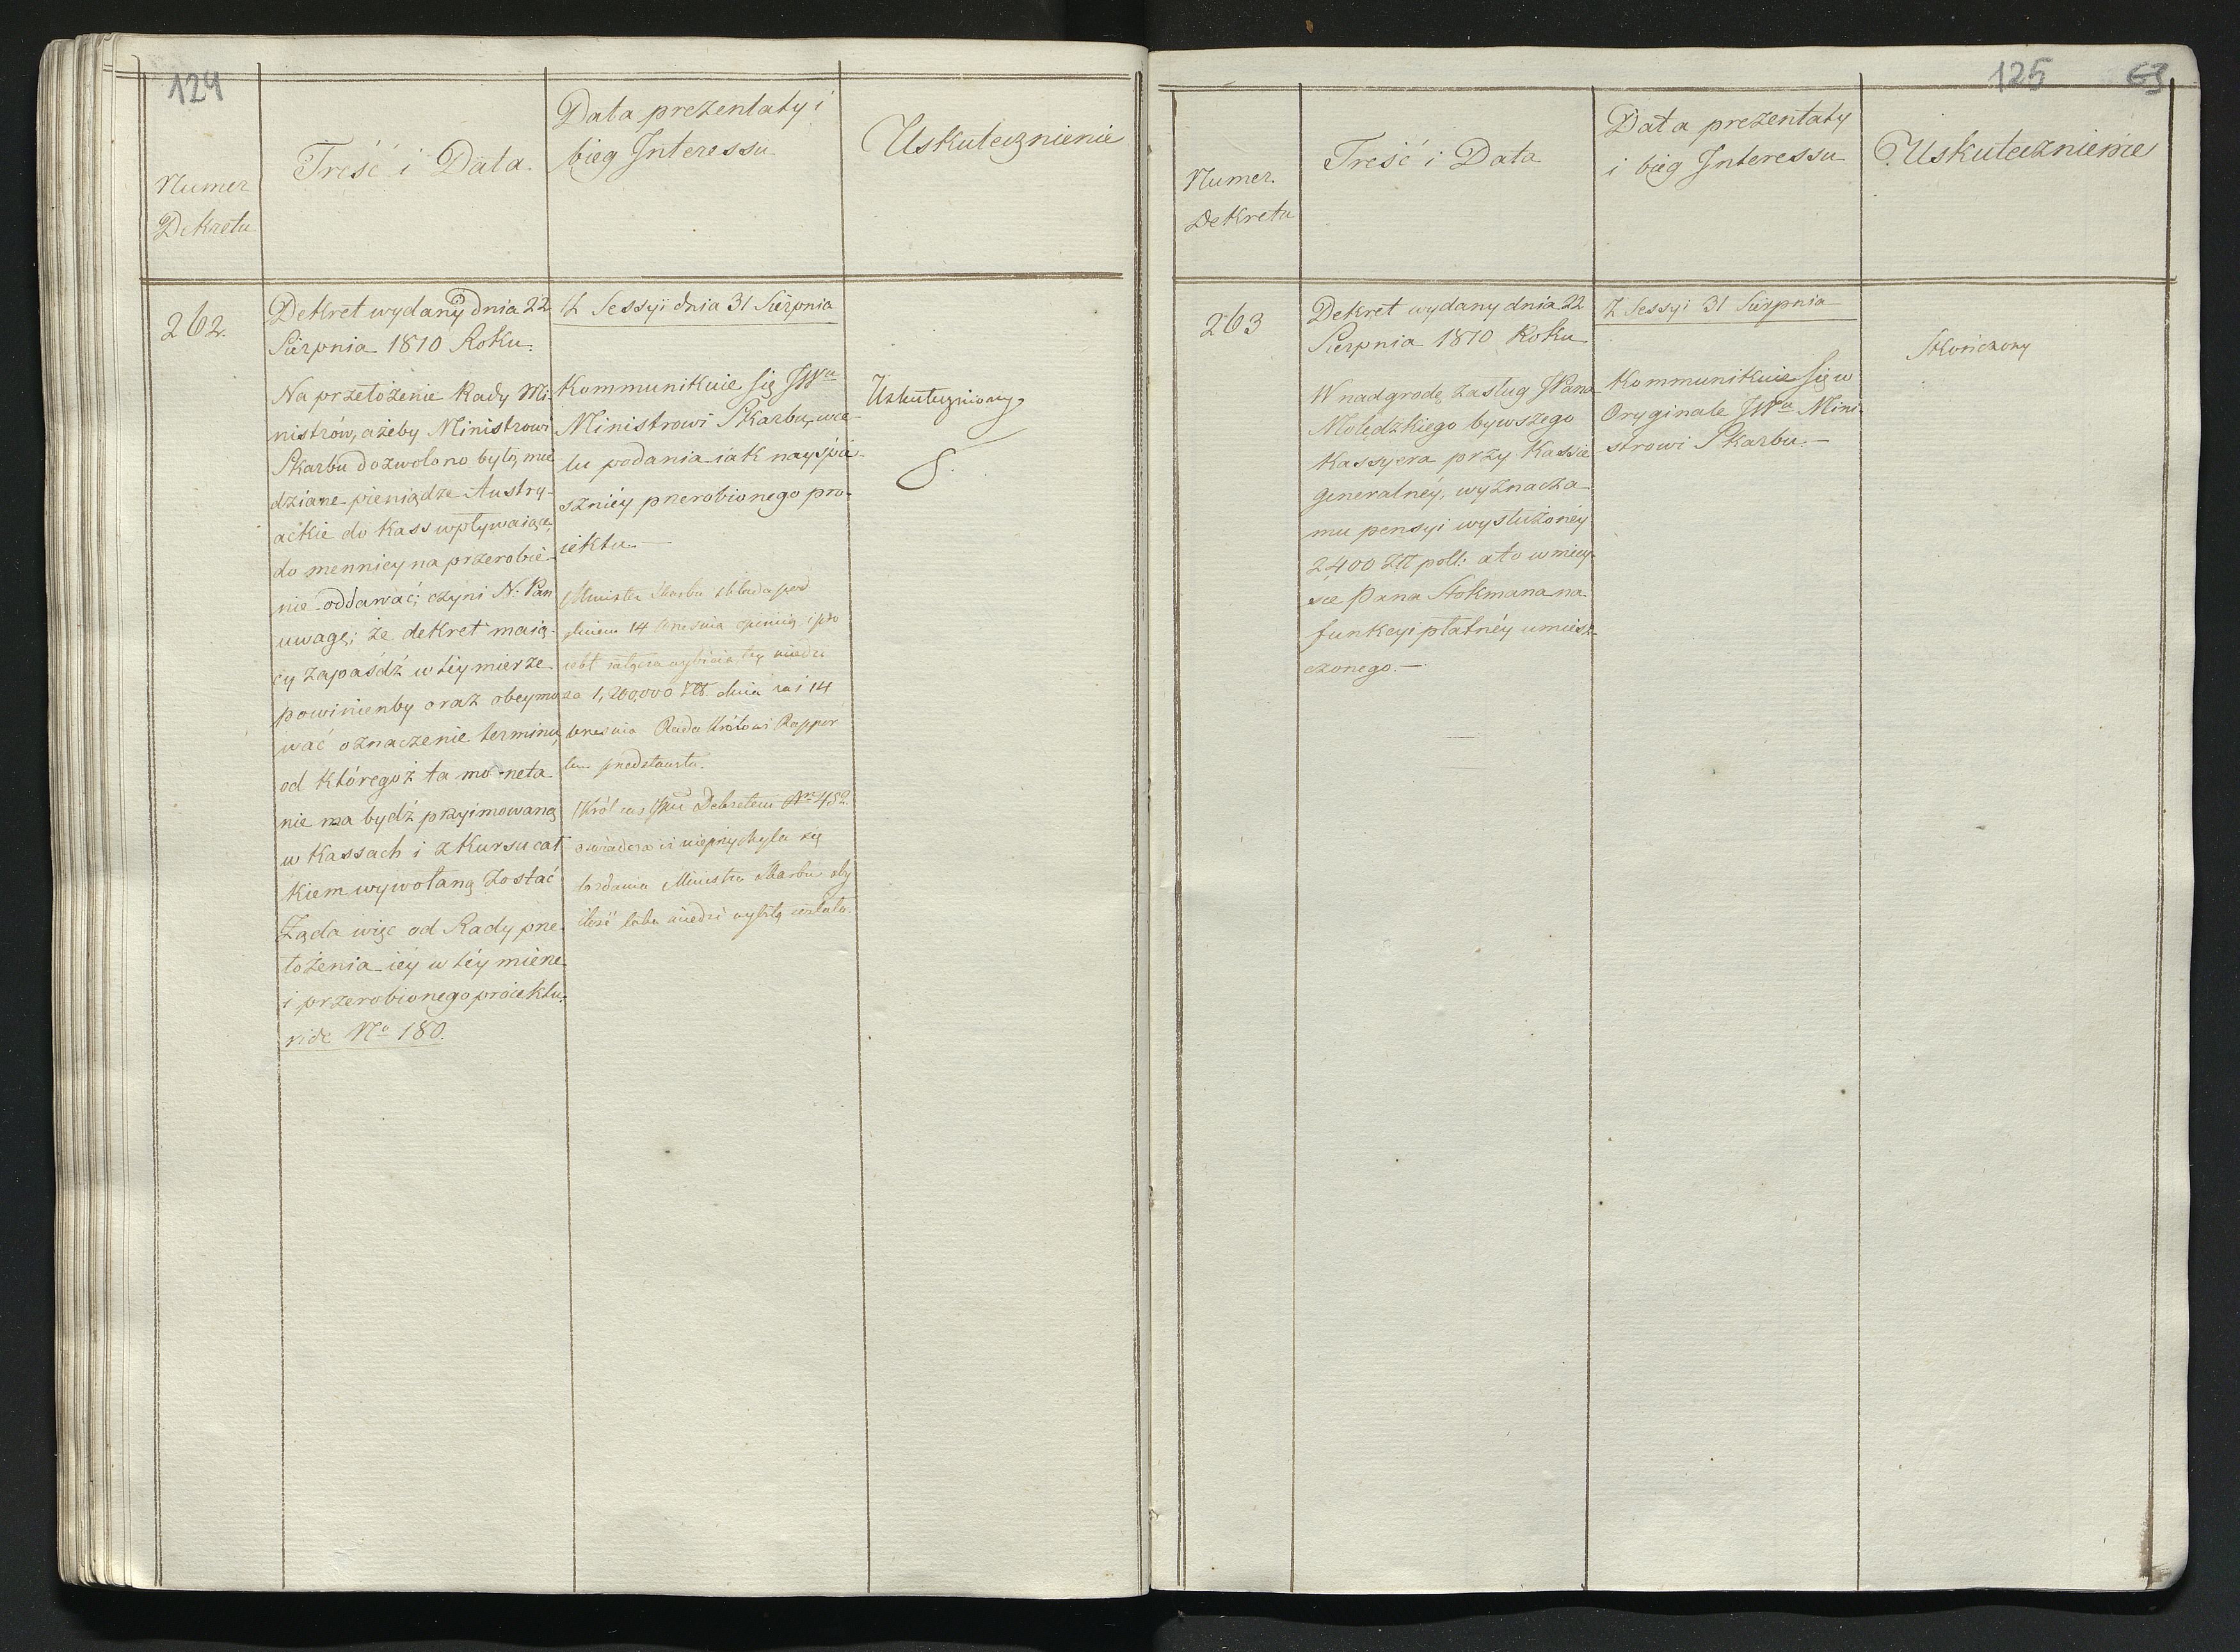 124
Numer
Dekretu
Treść i Data.
Data prezentaty i
bieg Interessu
Uskutecznienie
262.
Dekret wydany dnia 22
Sierpnia 1810 Roku.
Na przełożenie Rady Mi-
nistrów, ażeby Ministrowi
Skarbu dozwolono było, mie
dziane pieniądze Austry-
ackie do Kass wpływaiące,
do mennicy na przerobie-
nie oddawać; czyni N. Pan
uwagę; że dekret maią-
cy zapaśdź w téy mierze
powinienby oraz obeymo
wać oznaczenie terminu,
od któregoż ta moneta
nie ma bydź przyimowaną
w Kassach i z kursu cał
kiem wywołaną zostać
Żąda więc od Rady prze-
łożenia iéy w téy mierze
i przerobionego proiektu.
vide No 180.
Z Sessyi dnia 31 Sierpnia
Kommunikuie się JWu
Ministrowi Skarbu, wce-
lu podania iak nayśpie-
szniéy przerobionego pro-
iektu.—
Minister Skarbu składa pod
dniem 14 Września opinią i pro
iekt wybicia téy miedzi
za 1,200,000 Złt. dnia 14
Września Rada Królowi Rappor
tem przedstawia.
Król Dekretem Nr 452.
oświadcza iż nieprzychyla się
do żądania Ministra Skarbu aby
ilość taka miedzi wybitą została.
Uskuteczniony
125 63
Numer.
Dekretu
Treść i Data
Data prezentaty
i bieg Interessu
Uskutecznienie
263
Dekret wydany dnia 22
Sierpnia 1810 Roku
W nadgrodę zasług JPana
Molędzkiego bywszego
Kassyera przy Kassie
Generalnéy, wyznacza
mu pensyi wysłużonéy
2,400 Złł poll: a to w miey-
sce Pana Stokmana na
funkcyi płatnéy umiesz-
czonego.—
Z Sessyi 31 Sierpnia
Kommunikuie się w
Oryginale JWu Mini-
strowi Skarbu.—
Skończony